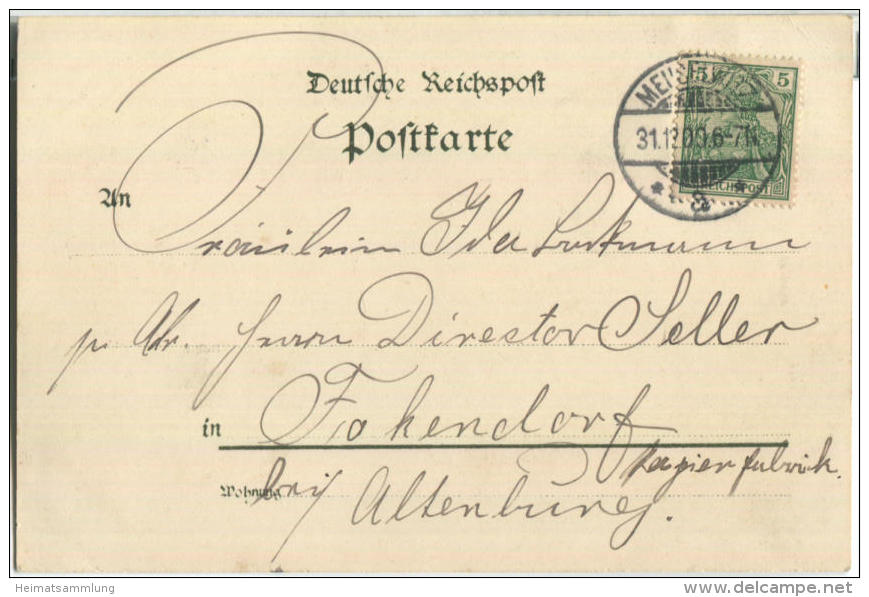 Deutsche Reichspost
Postkarte
An
Fräulein Ida Lorkmann
p. Adr. Herrn Director Seller
in Fokendorf
Papierfabrick.
Wohnung bei/ Altenburg.
5 5
REICHSPOST
31.12.00. 6-7N.
Heimatsammlung
www.delcampe.net